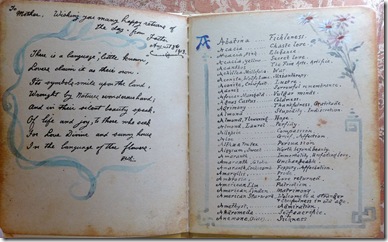 To
Mother. Wishing you many happy returns of
the day - from
August
There is a language, little known,
Lovers claim it as their own.
Its symbols smile upon the land,
Wrought by Nature's wondrous hand;
And in their silent beauty speak,
Of life and joy, to those who seek
For Love Divine and sunny hours
In the language of the flowers.
A
Abatina Fickleness
Acacia Chaste love
Acacia, Pink Elegance
Acacia, Yellow Secret love
Acanthus The fine arts, Artifice
Achillea Millefolia War
Aconite, Wolfsbane Misanthropy
Aconite, Crowfoot Lustre
Adonis Sorrowful remembrance
African Marigold Vulgar minds
Agnus Castus Coldness
Agrimony Thankfulness, Gratitude
Almond Stupidity, Indiscretion
Almond, Flowering Hope
Almond, Laurel Perfidy
Allspice Compassion
Aloe Grief, Affection
Althaea Frutex Persuasion
Alyssum, Sweet Worth beyond beauty
Amaranth Immortality, Unfading love
Amaranth, Globe Unchangeable
Amaranth, Coxcomb Foppery, Affectation
Amaryllis Pride
Ambrosia Love returned
American Elm Patriotism
American Linden Matrimony
American Starwort Welcome to a stranger
Cheerfulness in old age
Amethyst Admiration
Andromeda Self sacrifice
Anemone Sickness